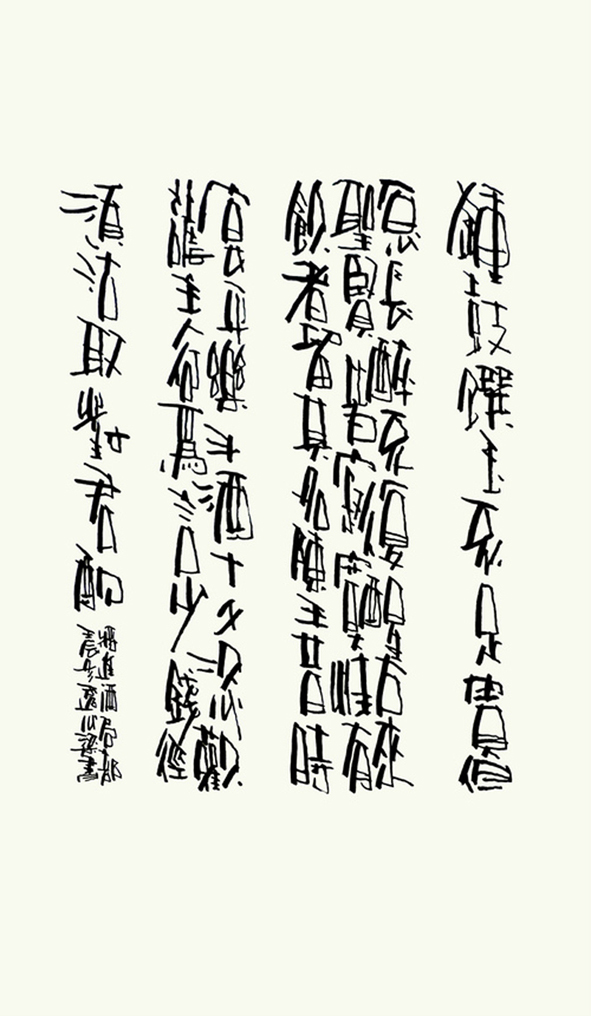 鐘鼓饌玉不足貴但
愿長醉不復醒古來
聖賢皆寂寞惟有
飲者留其名陳王昔時
宴平樂斗酒十千恣歡
謔主人何爲言少錢徑
須沽取對君酌
將進酒局部
書